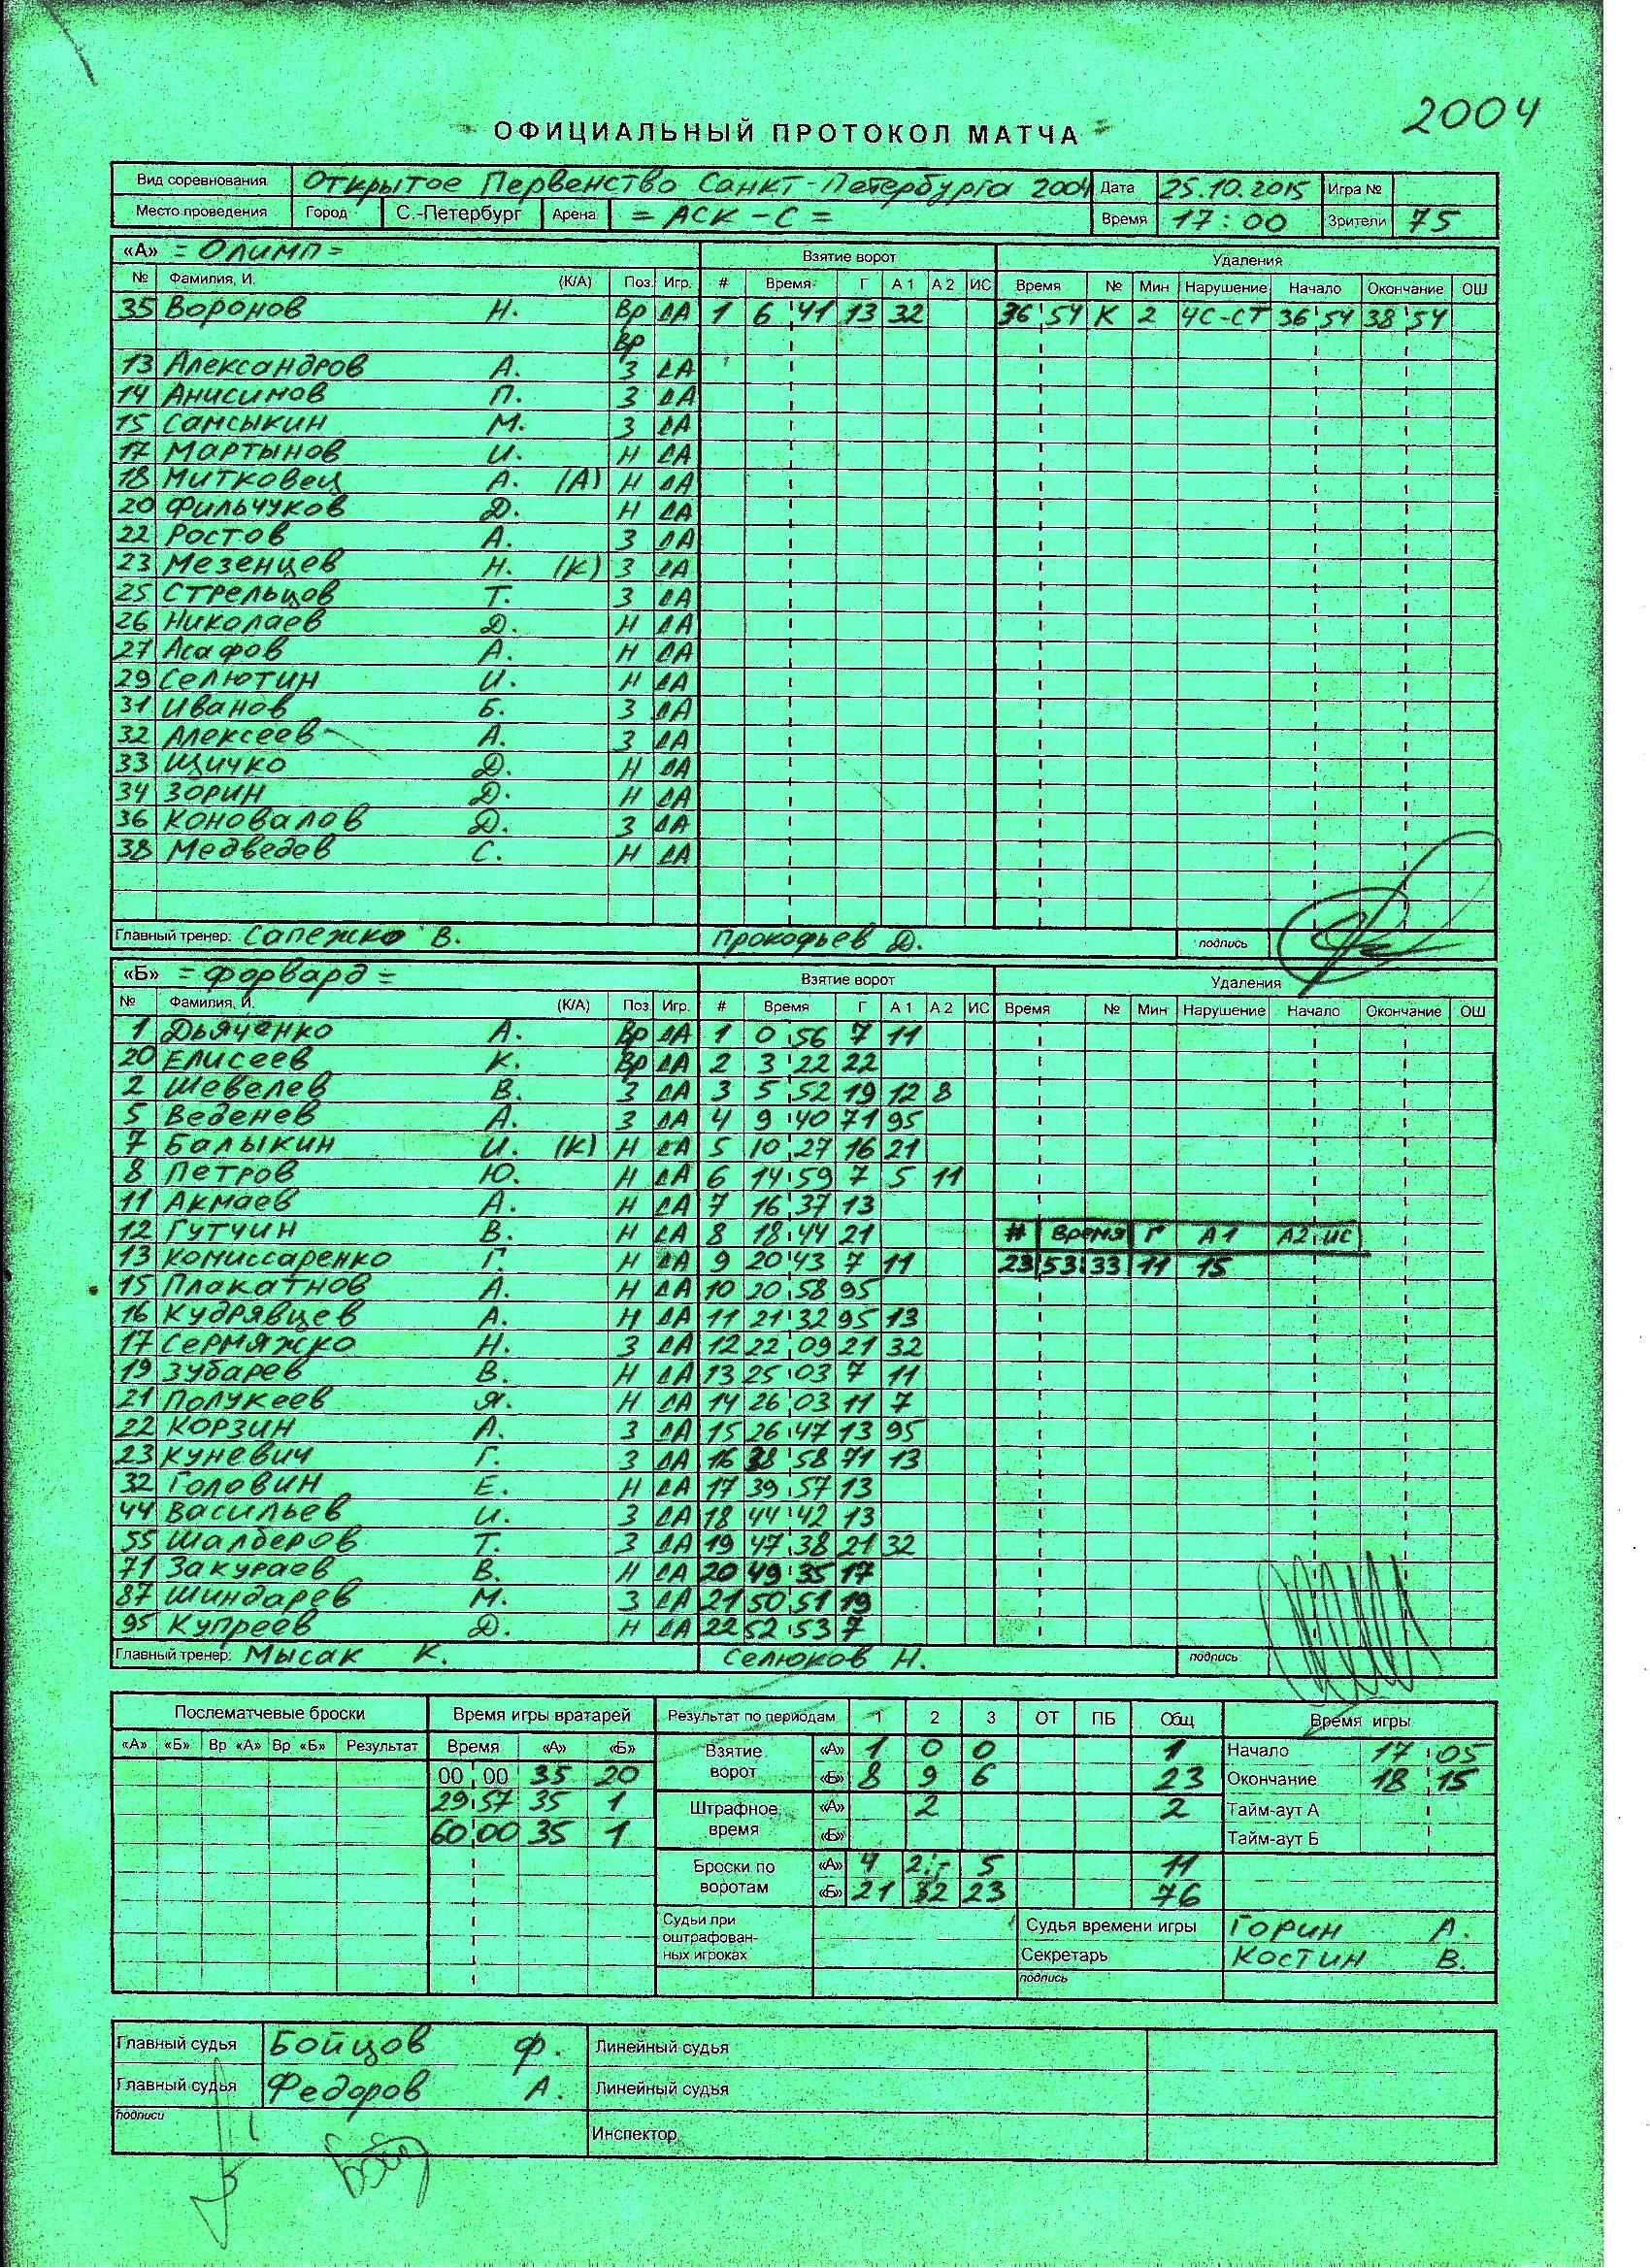 2004
ОФИЦИАЛЬНЫЙ ПРОТОКОЛ МАТЧА
Вид соревнования Открытое Первенство Санкт-Петербурга 2004 Дата 25.10.2015 Игра №
Место проведения Город С.-Петербург Арена = АСК-С = Время 17:00 Зрители 75
«А» = Олимп = Взятие ворот Удаления
№ Фамилия, И. (К/А) Поз. Игр. # Время Г А1 А2 ИС Время № Мин Нарушение Начало Окончание ОШ
35 Воронов Н. Вр ДА 1 6 41 13 32 36 54 К 2 ЧС-СТ 36 54 38 54
Вр
13 Александров А. З ДА
14 Анисимов П. З ДА
15 Самсыкин М. З ДА
17 Мартынов И. Н ДА
18 Митковец А. (А) Н ДА
20 Фильчуков Д. Н ДА
22 Ростов А. З ДА
23 Мезенцев Н. (К) З ДА
25 Стрельцов Т. З ДА
26 Николаев Д. Н ДА
27 Асафов А. Н ДА
29 Селютин И. Н ДА
31 Иванов Б. З ДА
32 Алексеев А. З ДА
33 Щичко Д. Н ДА
34 Зорин Д. Н ДА
36 Коновалов Д. З ДА
38 Медведев С. Н ДА
Главный тренер: Сапежко В. Прокофьев Д. подпись
«Б» = Форвард = Взятие ворот Удаления
№ Фамилия, И. (К/А) Поз Игр. # Время Г А1 А2 ИС Время № Мин Нарушение Начало Окончание ОШ
1 Дьяченко А. Вр ДА 1 0 56 7 11
20 Елисеев К. Вр ДА 2 3 22 22
2 Шевелев В. З ДА 3 5 52 19 12 8
5 Веденев А. З ДА 4 9 40 71 95
7 Балыкин И. (К) Н ДА 5 10 27 16 21
8 Петров Ю. Н ДА 6 14 59 7 5 11
11 Акмаев А. Н ДА 7 16 37 13
12 Гутчин В. Н ДА 8 18 44 21 # Время Г А1 А2 ИС
13 Комиссаренко Г. Н ДА 9 20 43 7 11 23 53 33 11 15
15 Плакатнов А. Н ДА 10 20 58 95
16 Кудрявцев А. Н ДА 11 21 32 95 13
17 Сермяжко Н. З ДА 12 22 09 21 32
19 Зубарев В. Н ДА 13 25 03 7 11
21 Полукеев Я. Н ДА 14 26 03 11 7
22 Корзин А. З ДА 15 26 47 13 95
23 Куневич Г. З ДА 16 38 58 71 13
32 Головин Е. Н ДА 17 39 57 13
44 Васильев И. З ДА 18 44 42 13
55 Шалберов Т. З ДА 19 47 38 21 32
71 Закураев В. Н ДА 20 49 35 17
87 Шиндарев М. З ДА 21 50 51 19
95 Купреев Д. Н ДА 22 52 53 7
Главный тренер: Мысак К. Селюков Н. подпись
Послематчевые броски Время игры вратарей Результат по периодам 1 2 3 ОТ ПБ Общ Время игры
«А» «Б» Вр «А» Вр «Б» Результат Время «А» «Б» Взятие ворот «А» 1 0 0 1 Начало 17 05
00 00 35 20 «Б» 8 9 6 23 Окончание 18 15
29 57 35 1 Штрафное время «А» 2 2 Тайм-аут А
60 00 35 1 «Б» Тайм-аут Б
Броски по воротам «А» 4 2 5 11
«Б» 21 32 23 76
Судьи при оштрафован-ных игроках Судья времени игры Горин А.
Секретарь Костин В.
подпись
Главный судья Бойцов Ф. Линейный судья
Главный судья Федоров А. Линейный судья
подписи
Инспектор